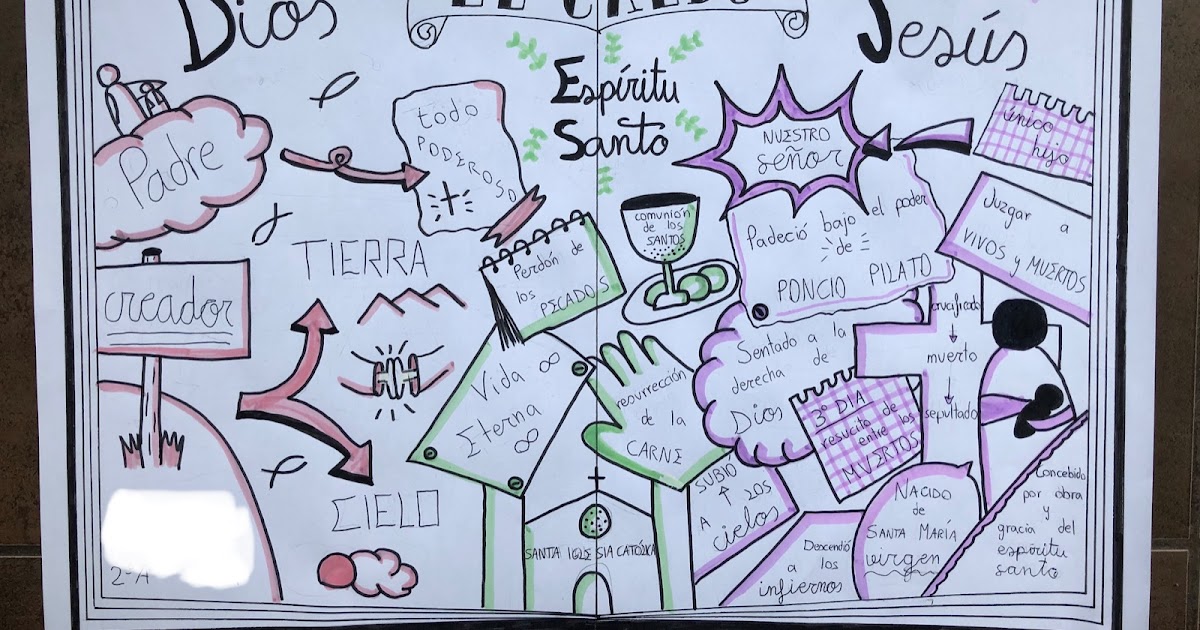 Dios
EL CREDO
Jesús
Padre
todo
PODEROSO
creador
TIERRA
CIELO
2ºA
Espíritu
Santo
Perdón de
los
PECADOS
comunión
de los
SANTOS
Vida
Eterna
resurrección
de la
CARNE
SANTA IGLESIA CATÓLICA
NUESTRO
señor
único
hijo
Padeció bajo el poder
de
PONCIO PILATO
Juzgar a
VIVOS y MUERTOS
crucificado
muerto
sepultado
Sentado a la
derecha de
Dios
3º DIA
resucito de
entre los
MUERTOS
SUBIÓ
A LOS
cielos
Descendió
a los
infiernos
NACIDO
de
SANTA MARÍA
virgen
Concebido
por obra
y
gracia del
espíritu
santo